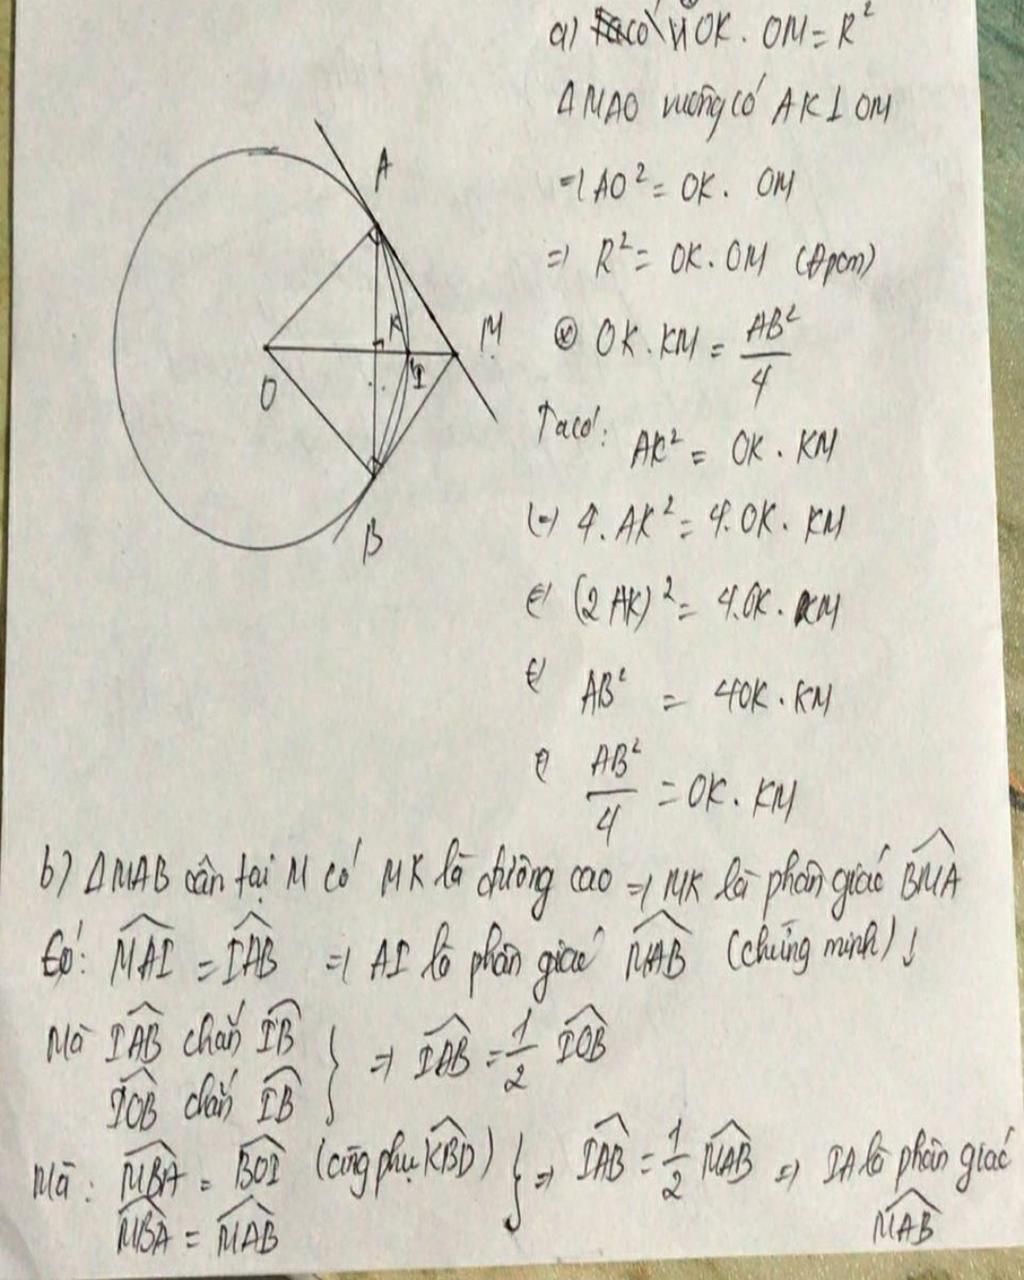 a) OK . OM = R²
ΔMAO vuông có AK ⊥ OM
=) AO² = OK . OM
=) R² = OK . OM (Đpcm)
⊗ OK . KM = AB²/4
Ta có: AK² = OK . KM
(=) 4. AK² = 4. OK . KM
(=) (2 AK)² = 4. OK . KM
(=) AB² = 4OK . KM
(=) AB²/4 = OK . KM
A
K
M
I
O
B
b) ΔMAB cân tại M có MK là đường cao =) MK là phân giác \widehat{BMA}
Có: \widehat{MAI} = \widehat{IAB} =) AI là phân giác \widehat{MAB} (chứng minh) ↓
Mà \widehat{IAB} chắn \widehat{IB}
\widehat{IOB} chắn \widehat{IB} } =) \widehat{IAB} = 1/2 \widehat{IOB}
Mà: \widehat{MBA} = \widehat{BOI} (cùng phụ \widehat{KBO})
\widehat{MBA} = \widehat{MAB} } =) \widehat{IAB} = 1/2 \widehat{MAB} =) IA là phân giác
\widehat{MAB}